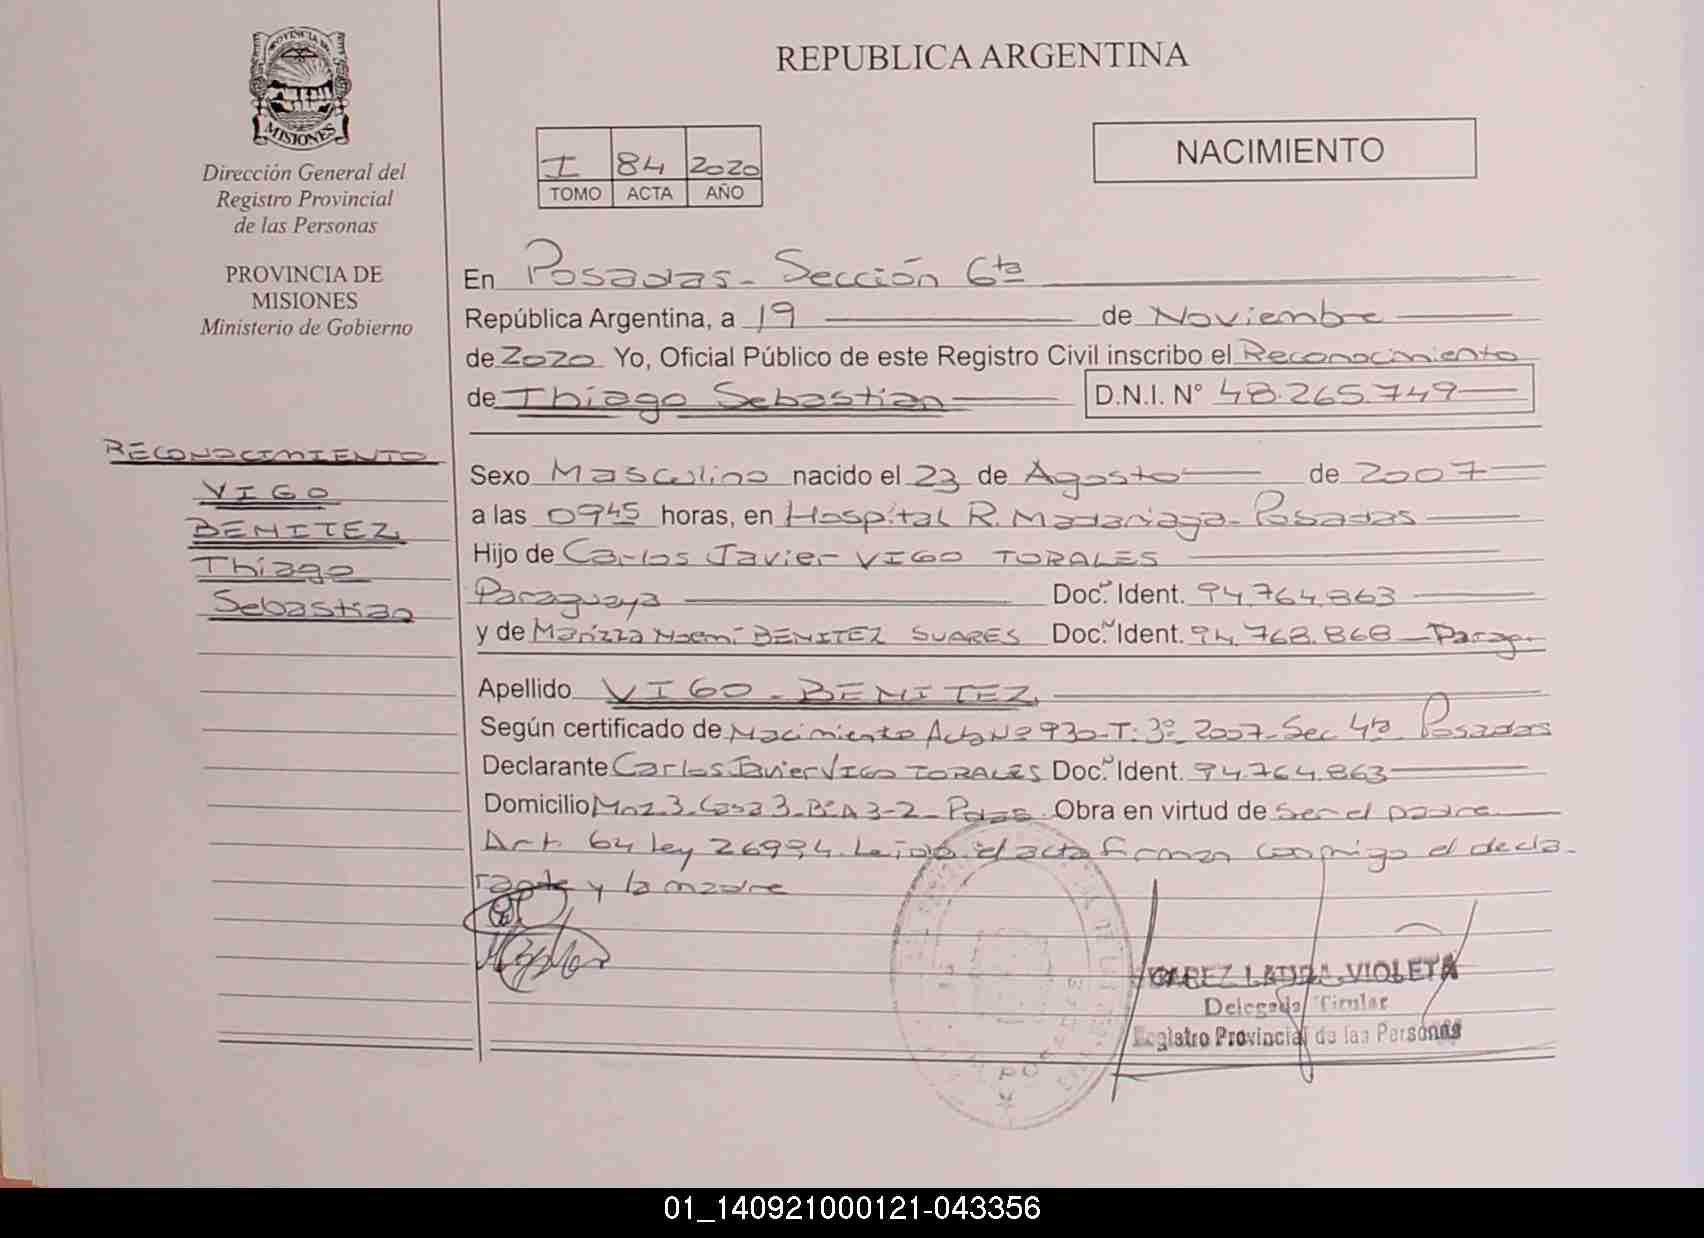 PROVINCIA DE
MISIONES
Dirección General del
Registro Provincial
de las Personas
PROVINCIA DE
MISIONES
Ministerio de Gobierno
RECONOCIMIENTO
VIGO
BENITEZ,
Thiago
Sebastian
REPUBLICA ARGENTINA
I 84 2020
TOMO ACTA AÑO
NACIMIENTO
En Posadas - Sección 6ta
República Argentina, a 19 de Noviembre
de 2020 Yo, Oficial Público de este Registro Civil inscribo el Reconocimiento
de Thiago Sebastian D.N.I. Nº 48.265.749
Sexo Masculino nacido el 23 de Agosto de 2007
a las 0945 horas, en Hospital R. Madariaga - Posadas
Hijo de Carlos Javier VIGO TORALES
Paraguaya Doc. Ident. 94.764.863
y de Marizza Noemi BENITEZ SUARES Doc. Ident. 94.768.868 - Parag.
Apellido VIGO - BENITEZ,
Según certificado de Nacimiento Acta Nº 930 - T: 3º 2007 - Sec 4ta Posadas
Declarante Carlos Javier VIGO TORALES Doc. Ident. 94.764.863
Domicilio Mnz 3 - Casa 3 - Bº A 3-2 - Pdas Obra en virtud de ser el padre
Art. 64 ley 26994. Leida el acta firman conmigo el decla-
rante y la madre
LAURA VIOLETA
Delegada Titular
Registro Provincial de las Personas
01_140921000121-043356